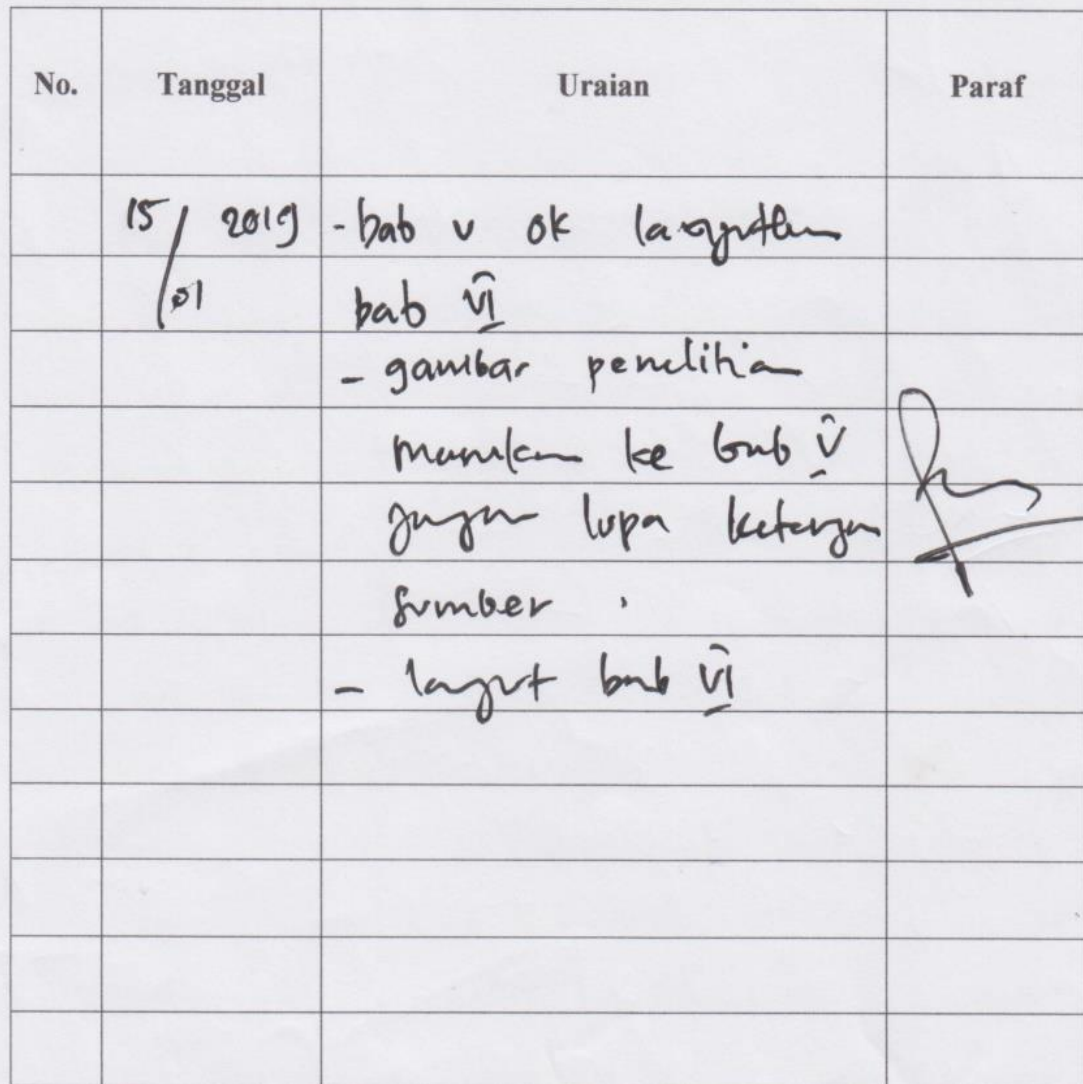 No. Tanggal Uraian Paraf
15/01 2019 - bab V ok lanjutkan
bab VI
- gambar penelitian
masukan ke bab V
jangan lupa keterangan
sumber.
- lanjut bab VI